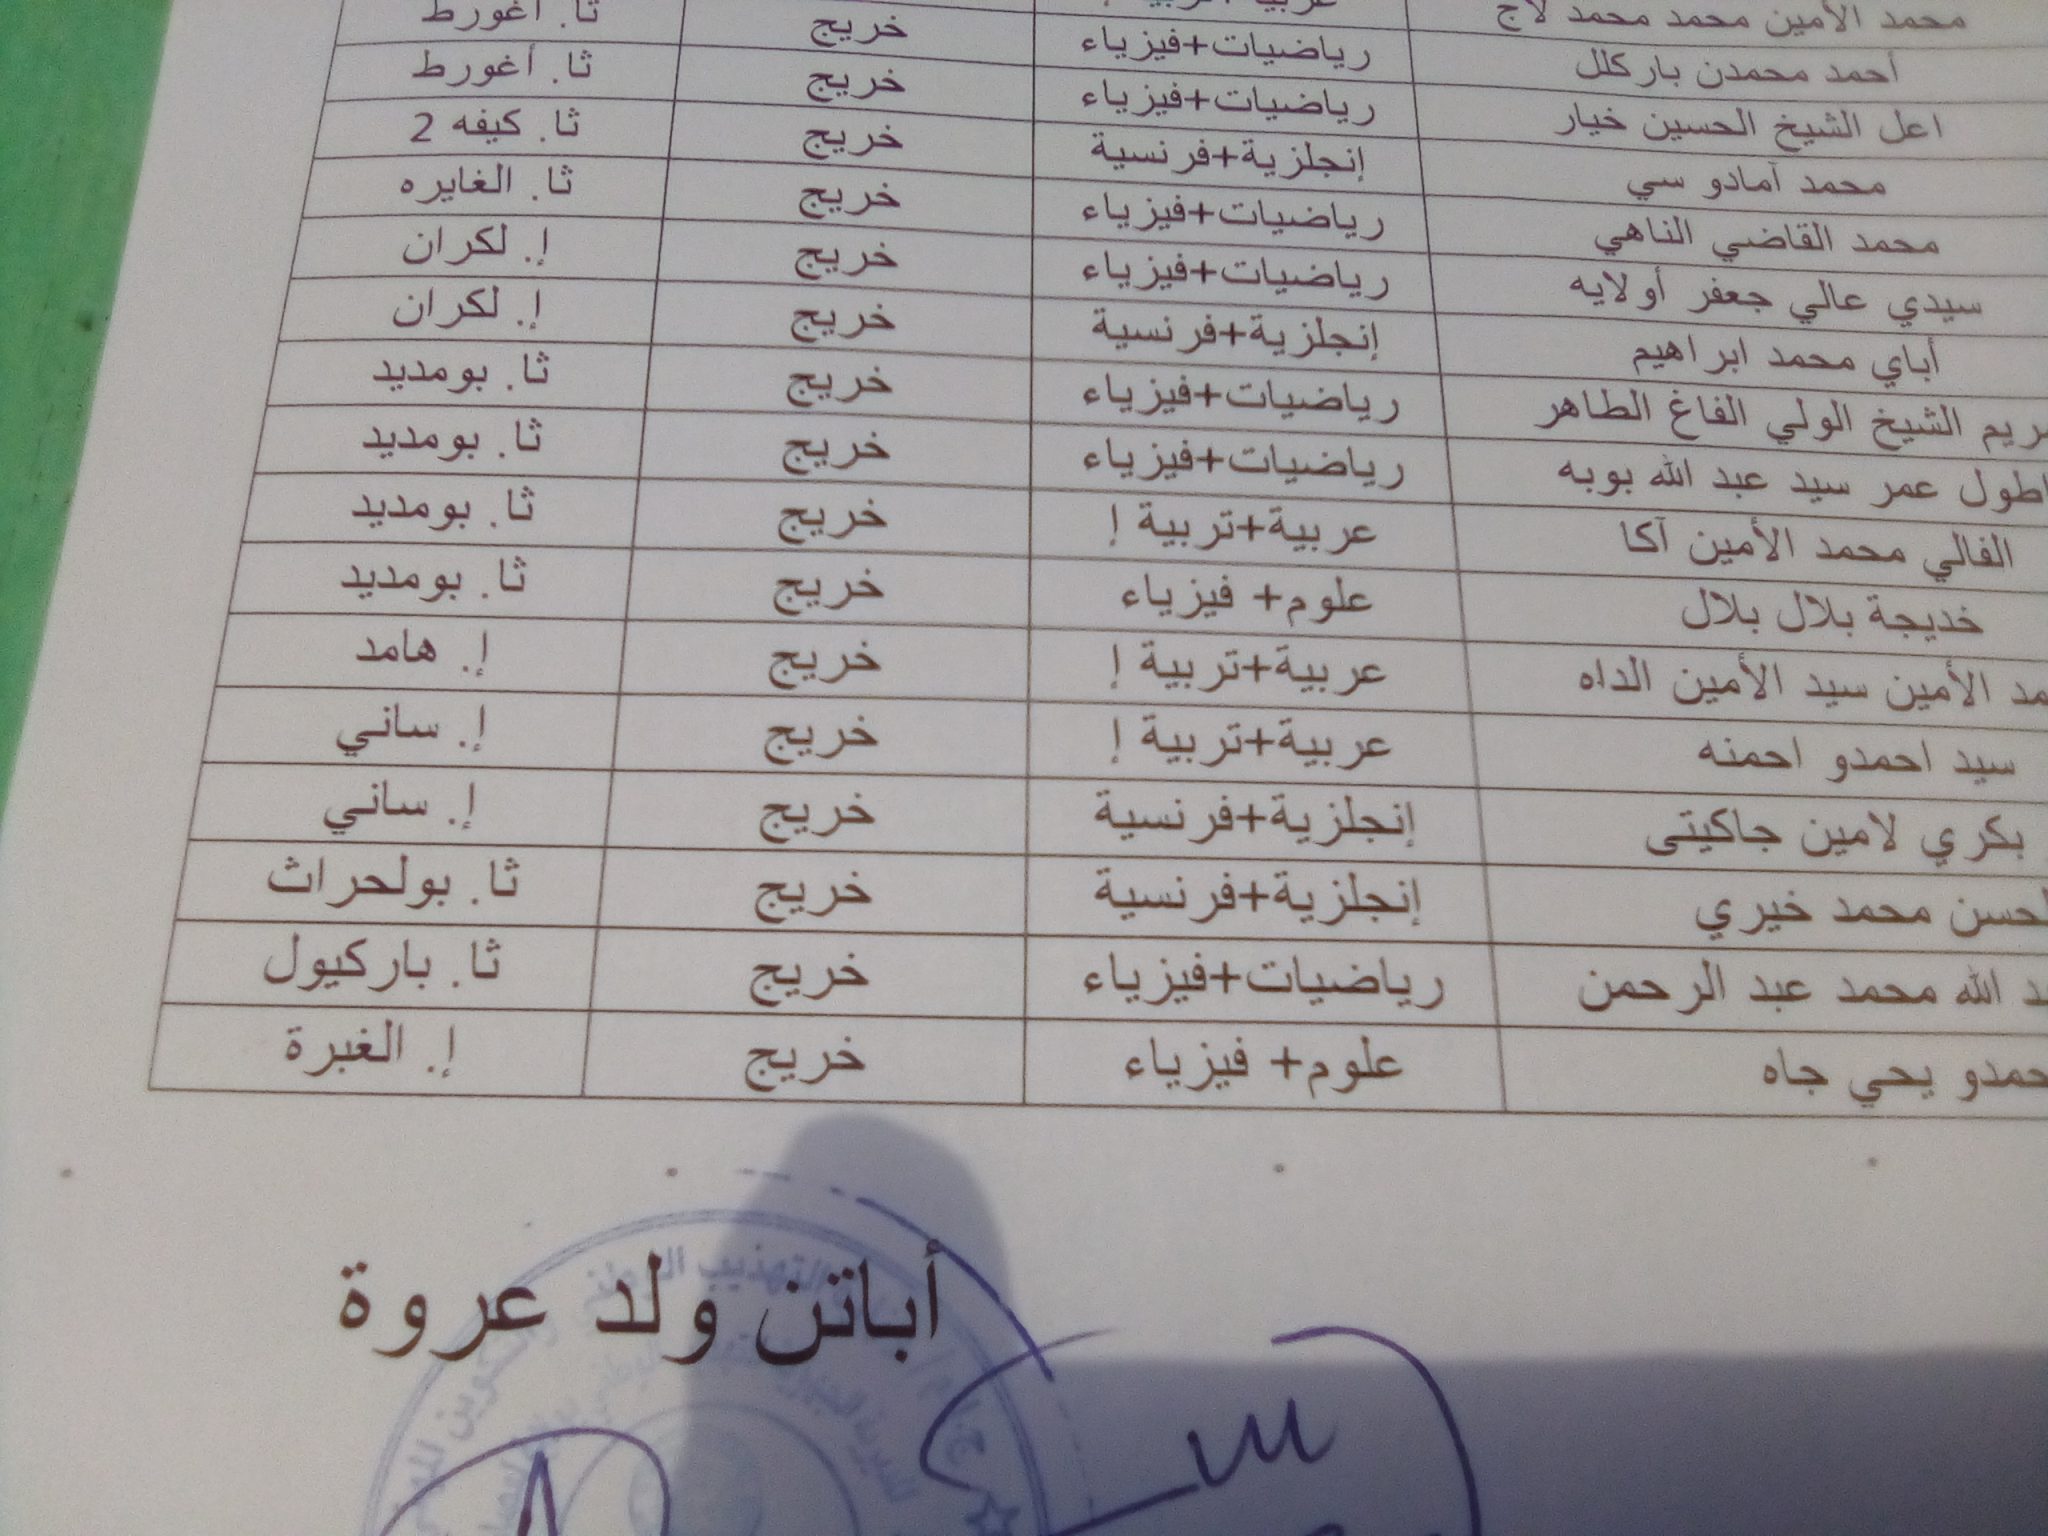 محمد الأمين محمد محمد لاج عربية+تربية إ خريج ثا. أغورط
أحمد محمدن باركلل رياضيات+فيزياء خريج ثا. أغورط
اعل الشيخ الحسين خيار رياضيات+فيزياء خريج ثا. كيفه 2
محمد آمادو سي إنجلزية+فرنسية خريج ثا. الغايره
محمد القاضي الناهي رياضيات+فيزياء خريج إ. لكران
سيدي عالي جعفر أولايه رياضيات+فيزياء خريج إ. لكران
أباي محمد ابراهيم إنجلزية+فرنسية خريج ثا. بومديد
ريم الشيخ الولي الفاغ الطاهر رياضيات+فيزياء خريج ثا. بومديد
اطول عمر سيد عبد الله بوبه رياضيات+فيزياء خريج ثا. بومديد
الفالي محمد الأمين آكا عربية+تربية إ خريج ثا. بومديد
خديجة بلال بلال علوم+ فيزياء خريج إ. هامد
مد الأمين سيد الأمين الداه عربية+تربية إ خريج إ. ساني
سيد احمدو احمنه عربية+تربية إ خريج إ. ساني
بكري لامين جاكيتى إنجلزية+فرنسية خريج ثا. بولحراث
لحسن محمد خيري إنجلزية+فرنسية خريج ثا. باركيول
د الله محمد عبد الرحمن رياضيات+فيزياء خريج إ. الغبرة
حمدو يحي جاه علوم+ فيزياء خريج
أباتن ولد عروة